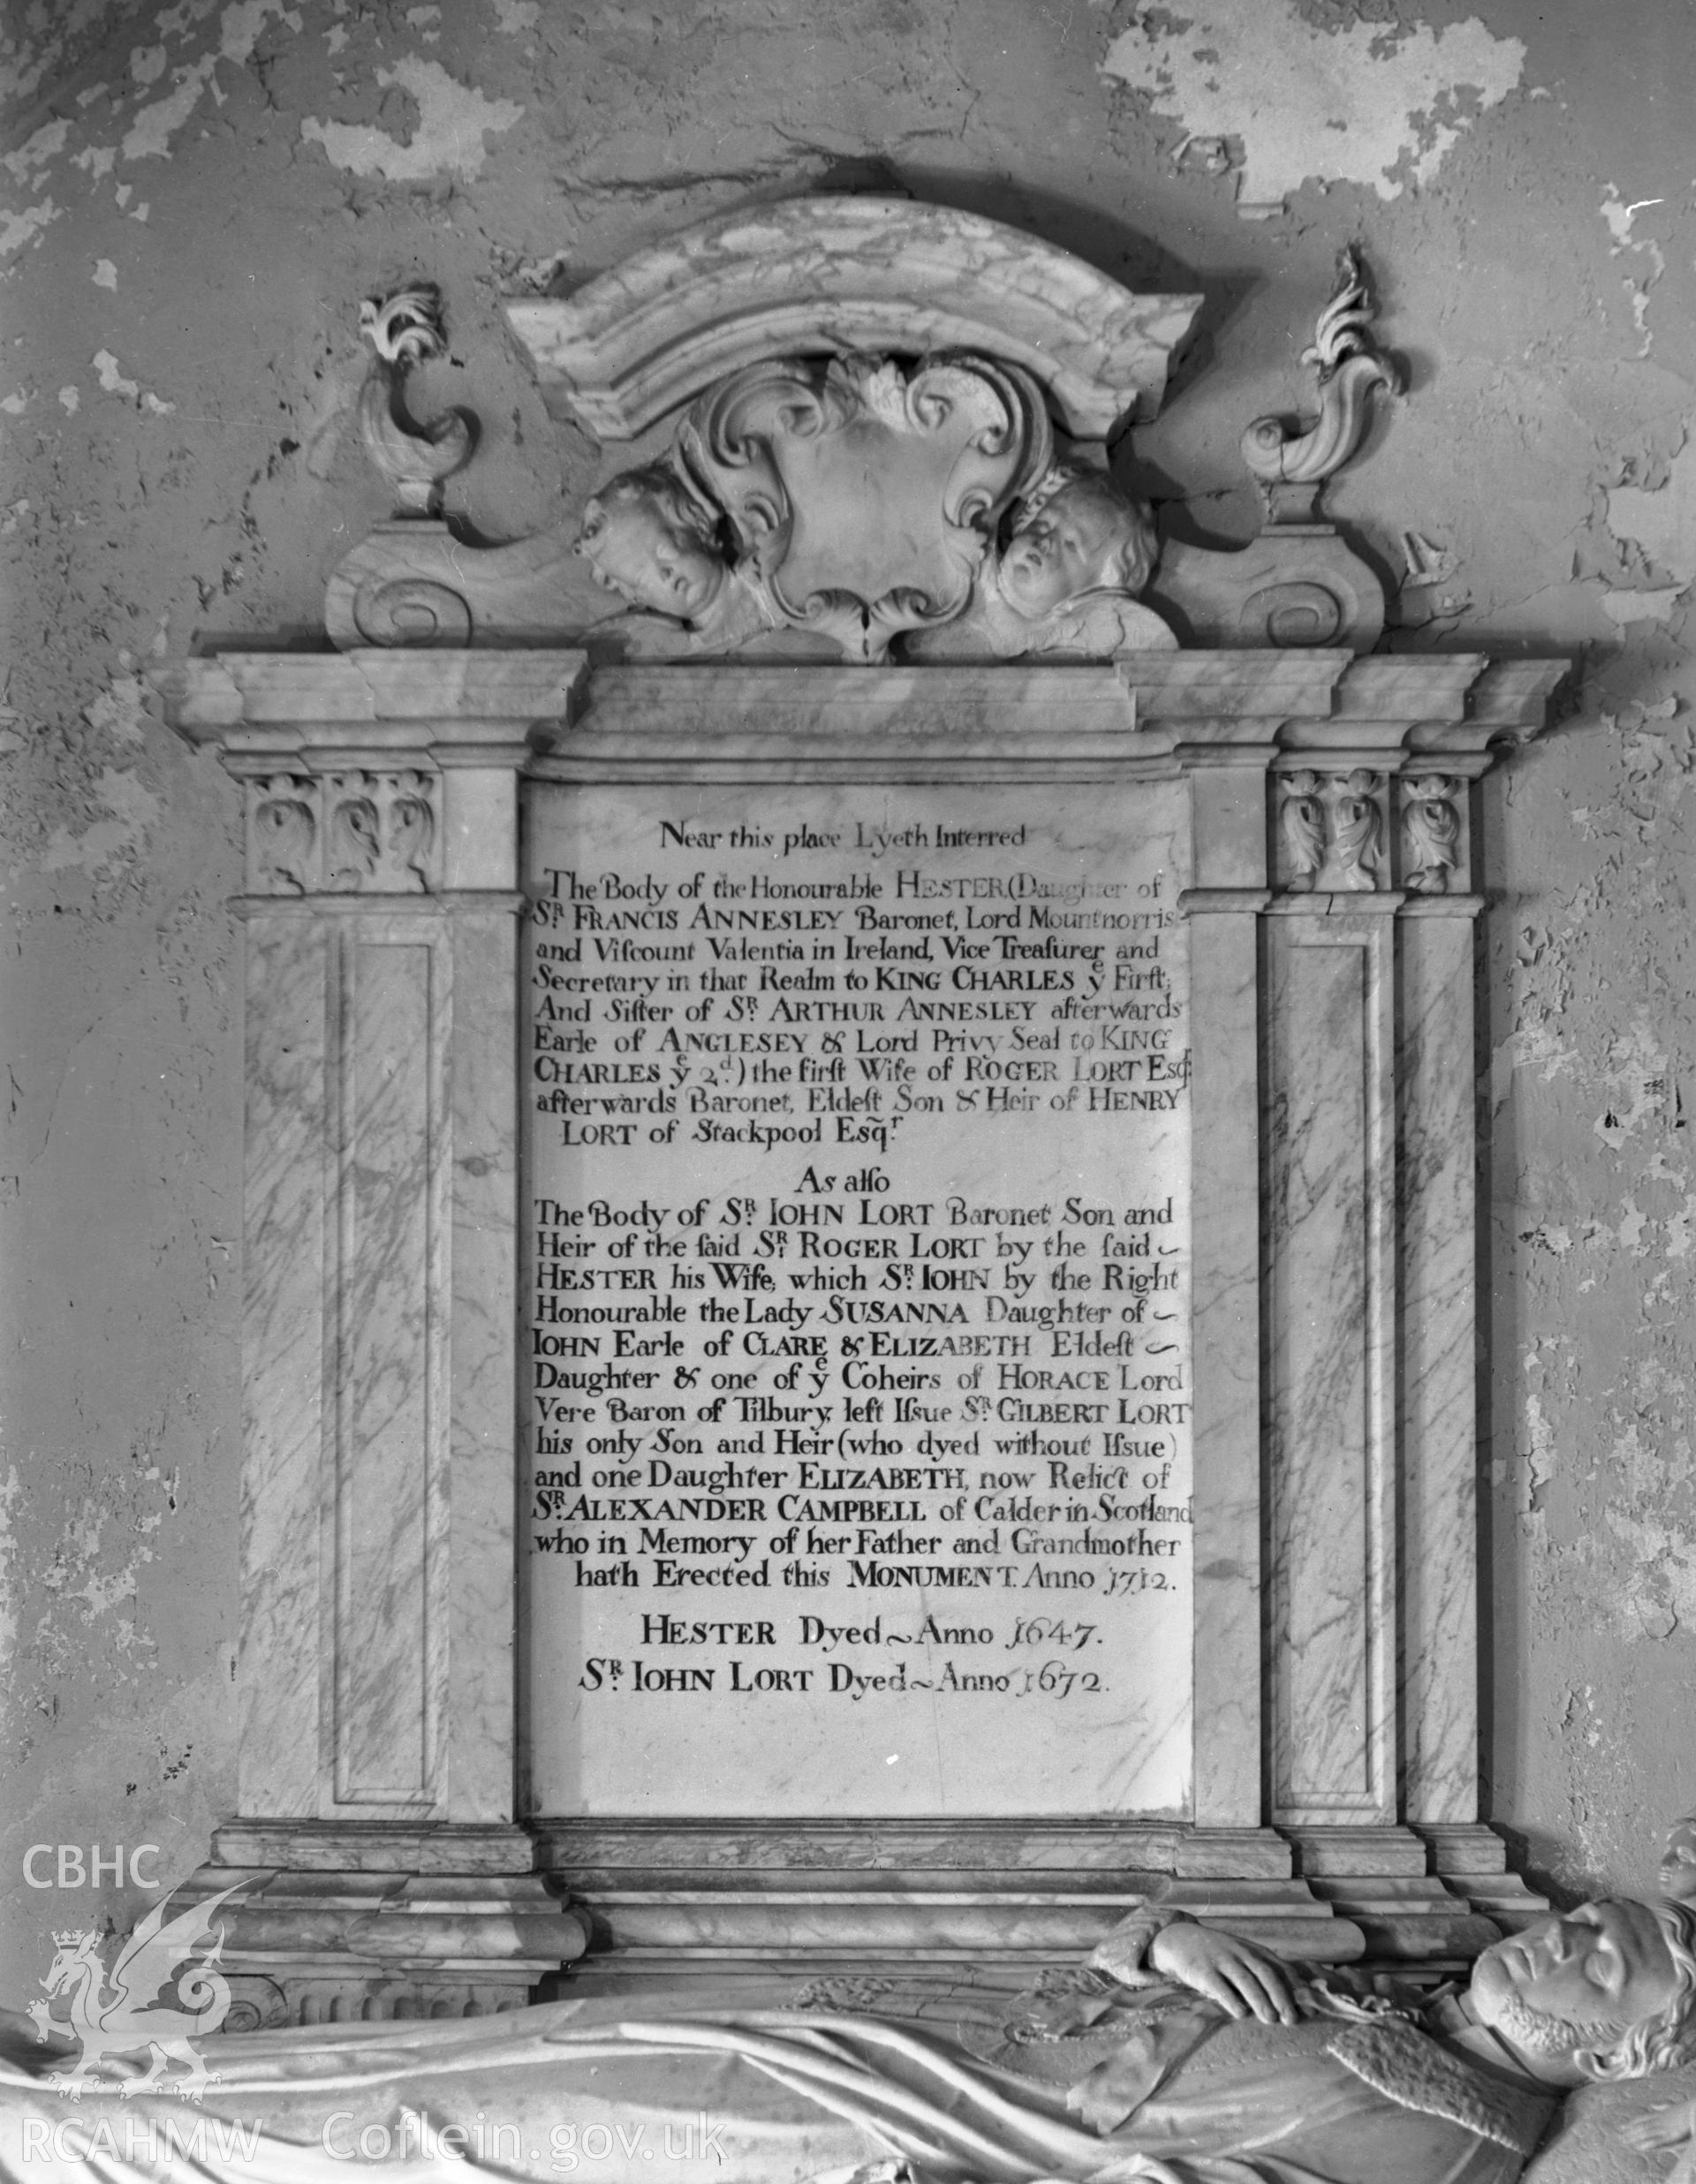 Near this place Lyeth Interred
The Body of the Honourable HESTER (Daughter of
Sᴿ. FRANCIS ANNESLEY Baronet, Lord Mountnorris
and Viſcount Valentia in Ireland, Vice Treaſurer and
Secretary in that Realm to KING CHARLES yᵉ Firſt;
And Siſter of Sᴿ. ARTHUR ANNESLEY afterwards
Earle of ANGLESEY & Lord Privy Seal to KING
CHARLES yᵉ 2ᵈ.) the firſt Wife of ROGER LORT Esqʳ.
afterwards Baronet, Eldeſt Son & Heir of HENRY
LORT of Stackpool Esq̃.ʳ
As alſo
The Body of Sᴿ. IOHN LORT Baronet Son and
Heir of the ſaid Sᴿ. ROGER LORT by the ſaid ~
HESTER his Wife; which Sᴿ. IOHN by the Right
Honourable the Lady SUSANNA Daughter of ~
IOHN Earle of CLARE & ELIZABETH Eldeſt ~
Daughter & one of yᵉ Coheirs of HORACE Lord
Vere Baron of Tilbury, left Iſsue Sᴿ. GILBERT LORT
his only Son and Heir (who dyed without Iſsue)
and one Daughter ELIZABETH, now Relict of
Sᴿ. ALEXANDER CAMPBELL of Calder in Scotland
who in Memory of her Father and Grandmother
hath Erected this MONUMENT. Anno 1712.
HESTER Dyed ~ Anno 1647.
Sᴿ. IOHN LORT Dyed ~ Anno 1672.
CBHC
RCAHMW Coflein.gov.uk